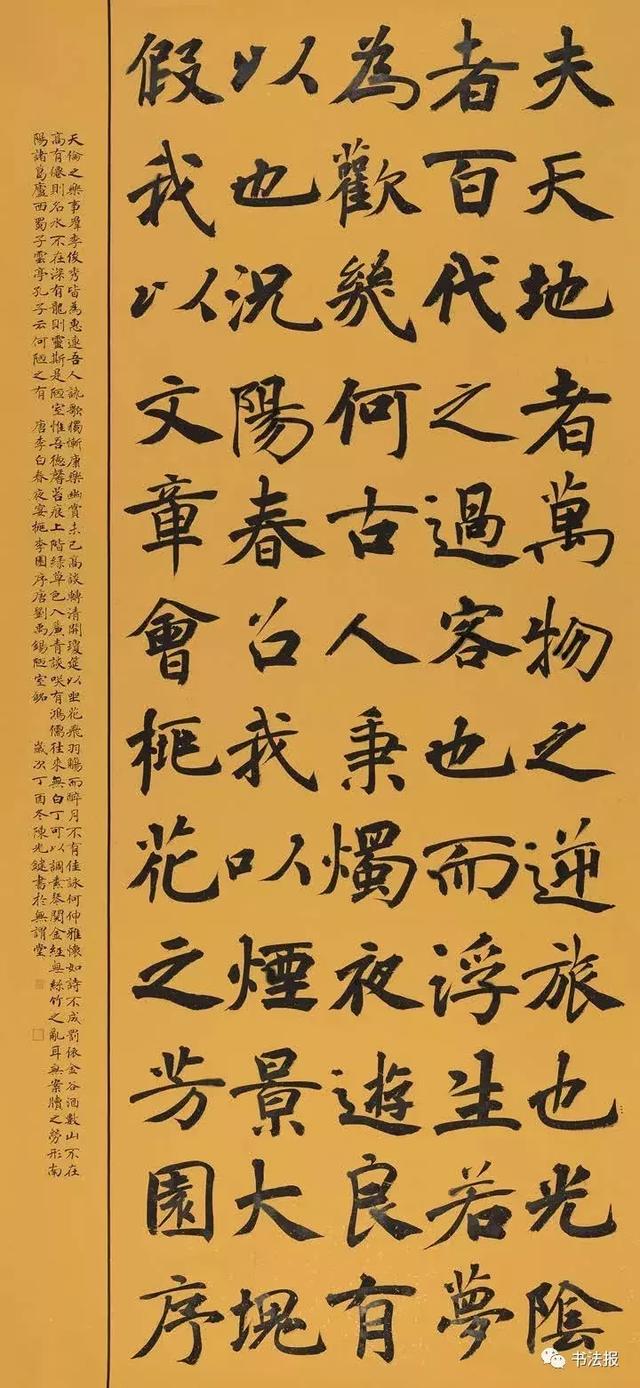 夫天地者萬物之逆旅也光陰
者百代之過客也而浮生若夢
為歡幾何古人秉燭夜遊良有
以也況陽春召我以煙景大塊
假我以文章會桃花之芳園序
天倫之樂事羣季俊秀皆為惠連吾人詠歌獨慚康樂幽賞未已高談轉清開瓊筵以坐花飛羽觴而醉月不有佳詠何伸雅懷如詩不成罰依金谷酒數山不在
高有僊則名水不在深有龍則靈斯是陋室惟吾德馨苔痕上階綠草色入簾青談笑有鴻儒往來無白丁可以調素琴閱金經無絲竹之亂耳無案牘之勞形南
陽諸葛廬西蜀子雲亭孔子云何陋之有 唐李白春夜宴桃李園序唐劉禹錫陋室銘 歲次丁酉冬陳光鍵書於無謂堂
书法报